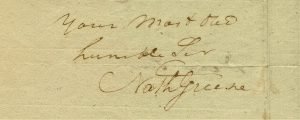 Your Most Obd
humble Ser
Nath Greene